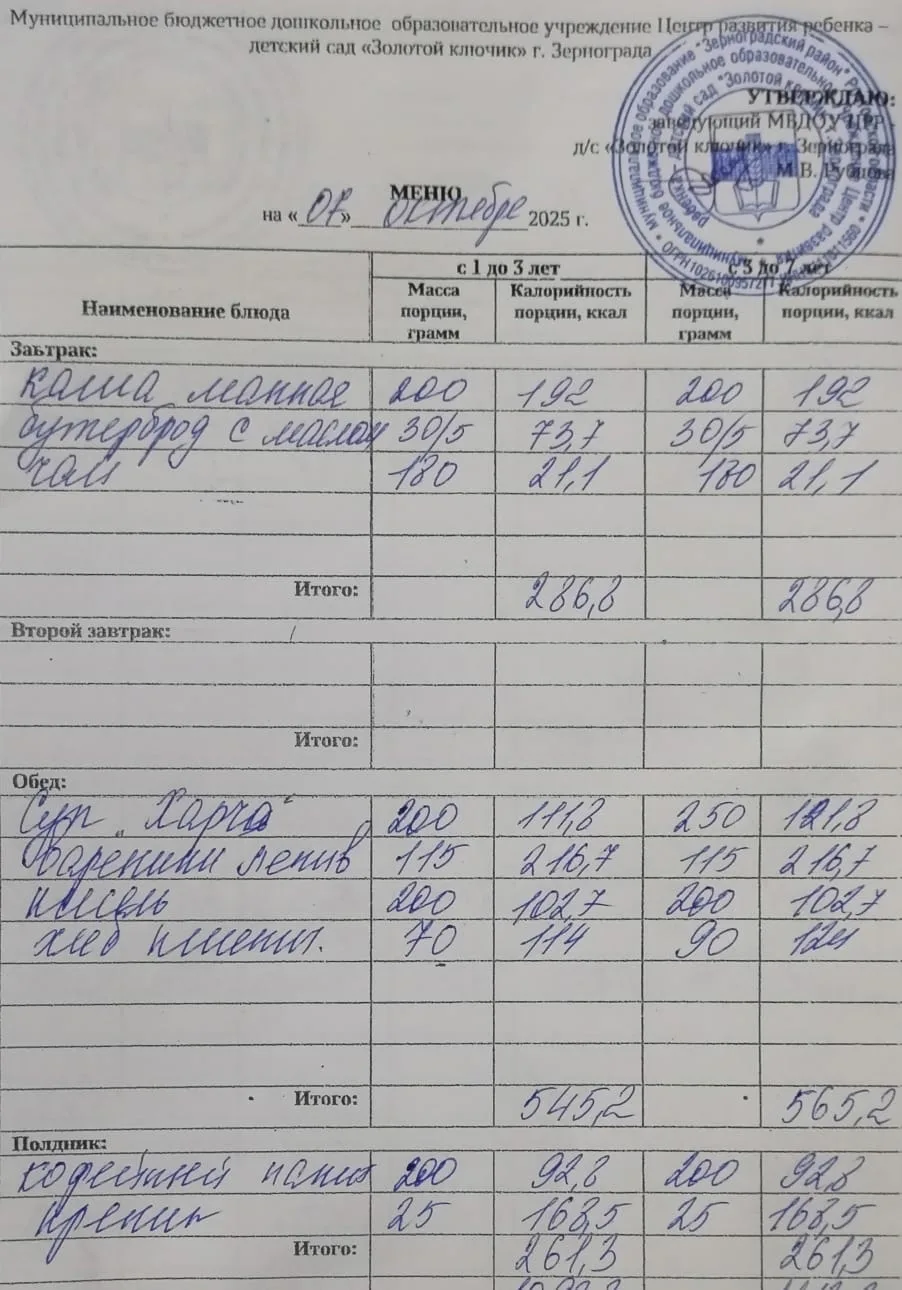 Муниципальное бюджетное дошкольное образовательное учреждение Центр развития ребенка –
детский сад «Золотой ключик» г. Зернограда
УТВЕРЖДАЮ:
заведующий МБДОУ ЦРР -
д/с «Золотой ключик» г. Зернограда
М.В. Рубцова
МЕНЮ
на «07» октября 2025 г.
с 1 до 3 лет с 3 до 7 лет
Наименование блюда Масса порции, грамм Калорийность порции, ккал Масса порции, грамм Калорийность порции, ккал
Завтрак:
каша манная 200 192 200 192
бутерброд с маслом 30/5 73,7 30/5 73,7
чай 180 21,1 180 21,1
Итого: 286,8 286,8
Второй завтрак:
Итого:
Обед:
Суп „Харчо“ 200 111,8 250 121,8
вареники ленив 115 216,7 115 216,7
кисель 200 102,7 200 102,7
хлеб пшенич. 70 114 90 124
Итого: 545,2 565,2
Полдник:
кофейный напит 200 92,8 200 92,8
крекин 25 168,5 25 168,5
Итого: 261,3 261,3